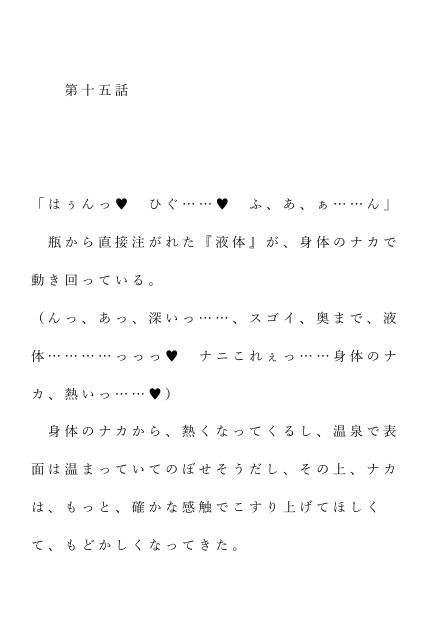 第十五話
「はぅんっ♥　ひぐ……♥　ふ、あ、ぁ……ん」
　瓶から直接注がれた『液体』が、身体のナカで
動き回っている。
（んっ、あっ、深いっ……、スゴイ、奥まで、液
体…………っっっ♥　ナニこれぇっ……身体のナ
カ、熱いっ……♥）
　身体のナカから、熱くなってくるし、温泉で表
面は温まっていてのぼせそうだし、その上、ナカ
は、もっと、確かな感触でこすり上げてほしく
て、もどかしくなってきた。